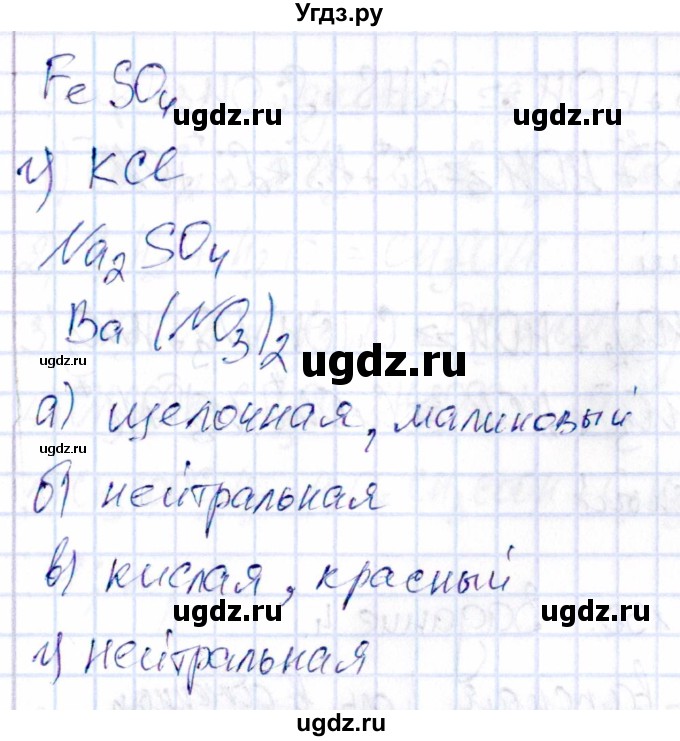 Угдз.ру
FeSO4
ugdz.ru ugdz.ru
г) KCl
Na2SO4
Ba(NO3)2
ugdz.ru ugdz.ru
а) щелочная, малиновый
ugdz.ru
б) нейтральная
в) кислая, красный
ugdz.ru ugdz.ru
г) нейтральная
ugdz.ru